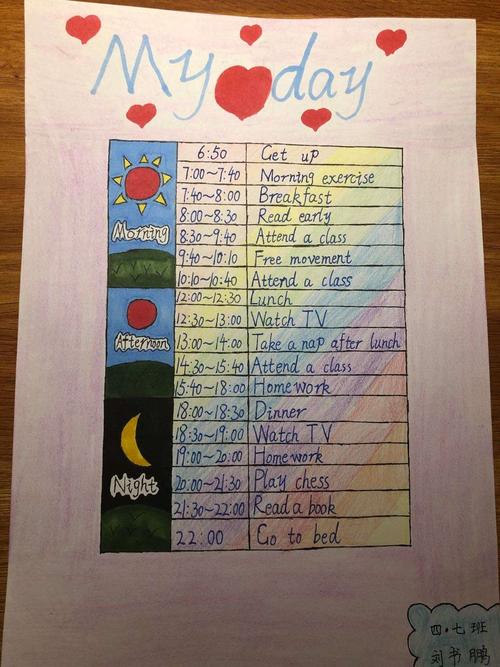 My day
Morning
6:50 Get up
7:00~7:40 Morning exercise
7:40~8:00 Breakfast
8:00~8:30 Read early
8:30~9:40 Attend a class
9:40~10:10 Free movement
10:10~10:40 Attend a class
Afternoon
12:00~12:30 Lunch
12:30~13:00 Watch TV
13:00~14:00 Take a nap after lunch
14:30~15:40 Attend a class
15:40~18:00 Homework
Night
18:00~18:30 Dinner
18:30~19:00 Watch TV
19:00~20:00 Homework
20:00~21:30 Play chess
21:30~22:00 Read a book
22:00 Go to bed
四·七班
刘书鹏